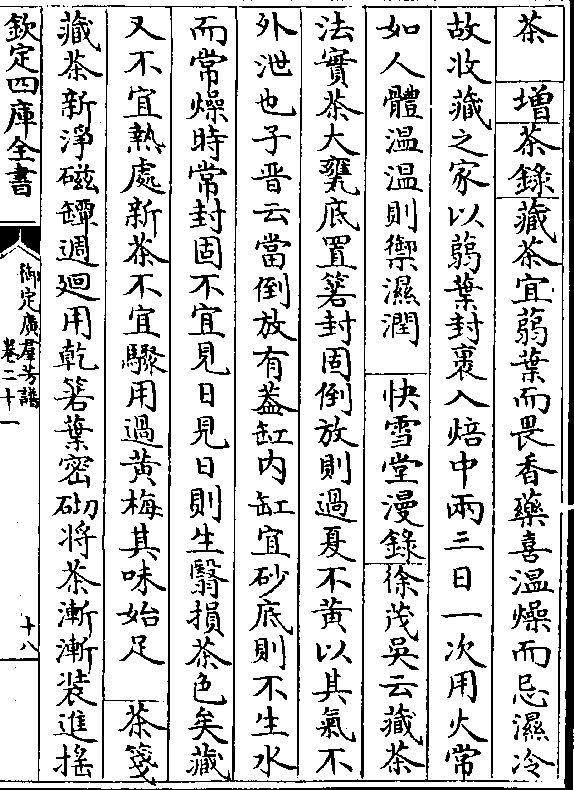 茶　增茶錄藏茶宜蒻葉而畏香藥喜温燥而忌濕冷
故收藏之家以蒻葉封裹入焙中兩三日一次用火常
如人體温温則禦濕潤　快雪堂漫錄徐茂吳云藏茶
法實茶大甕底置箬封固倒放則過夏不黄以其氣不
外泄也子晋云當倒放有葢缸内缸宜砂底則不生水
而常燥時常封固不宜見日見日則生翳損茶色矣藏
又不宜熱處新茶不宜驟用過黄梅其味始足　茶箋
藏茶新淨磁罈週廻用乾箬葉密砌將茶漸漸裝進搖
欽定四庫全書
御定廣羣芳譜
卷二十一
十八